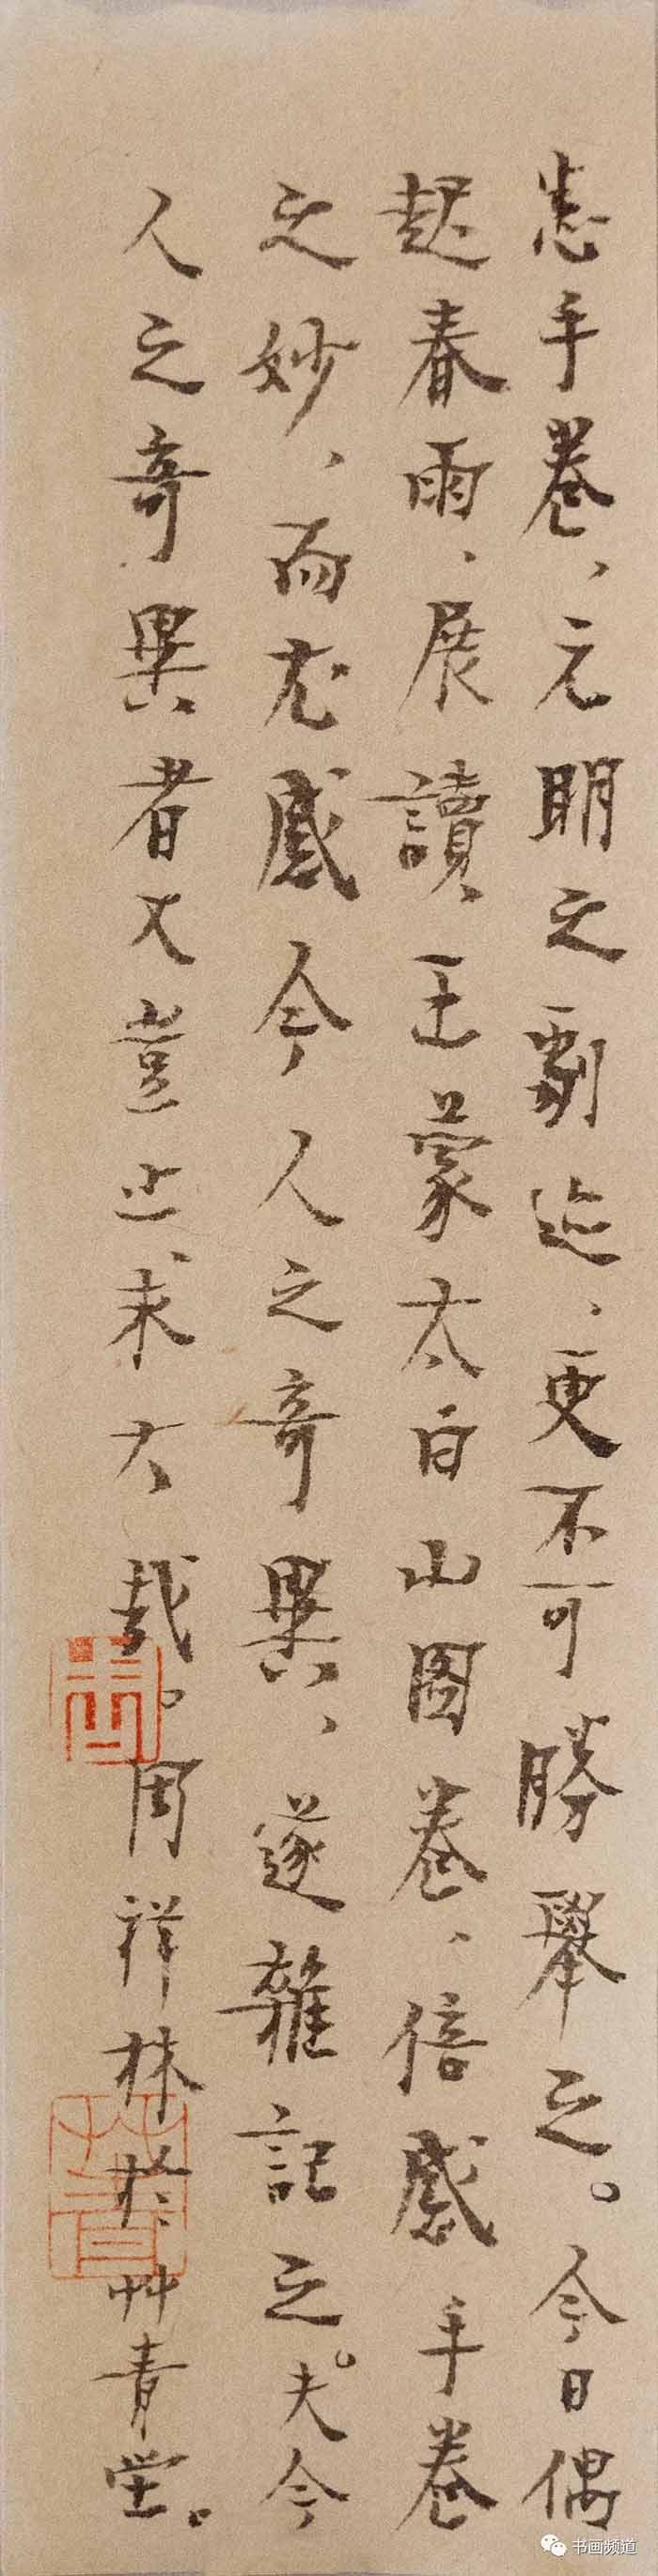 悉手卷、元明之劇迹、更不可勝舉之。今日偶
起春雨、展讀、王蒙太白山图卷、倍感手卷
之妙、而尤感今人之奇異、遂雜記之。夫今
人之奇異者又豈止求大哉。周祥林於艸青堂。
书画频道